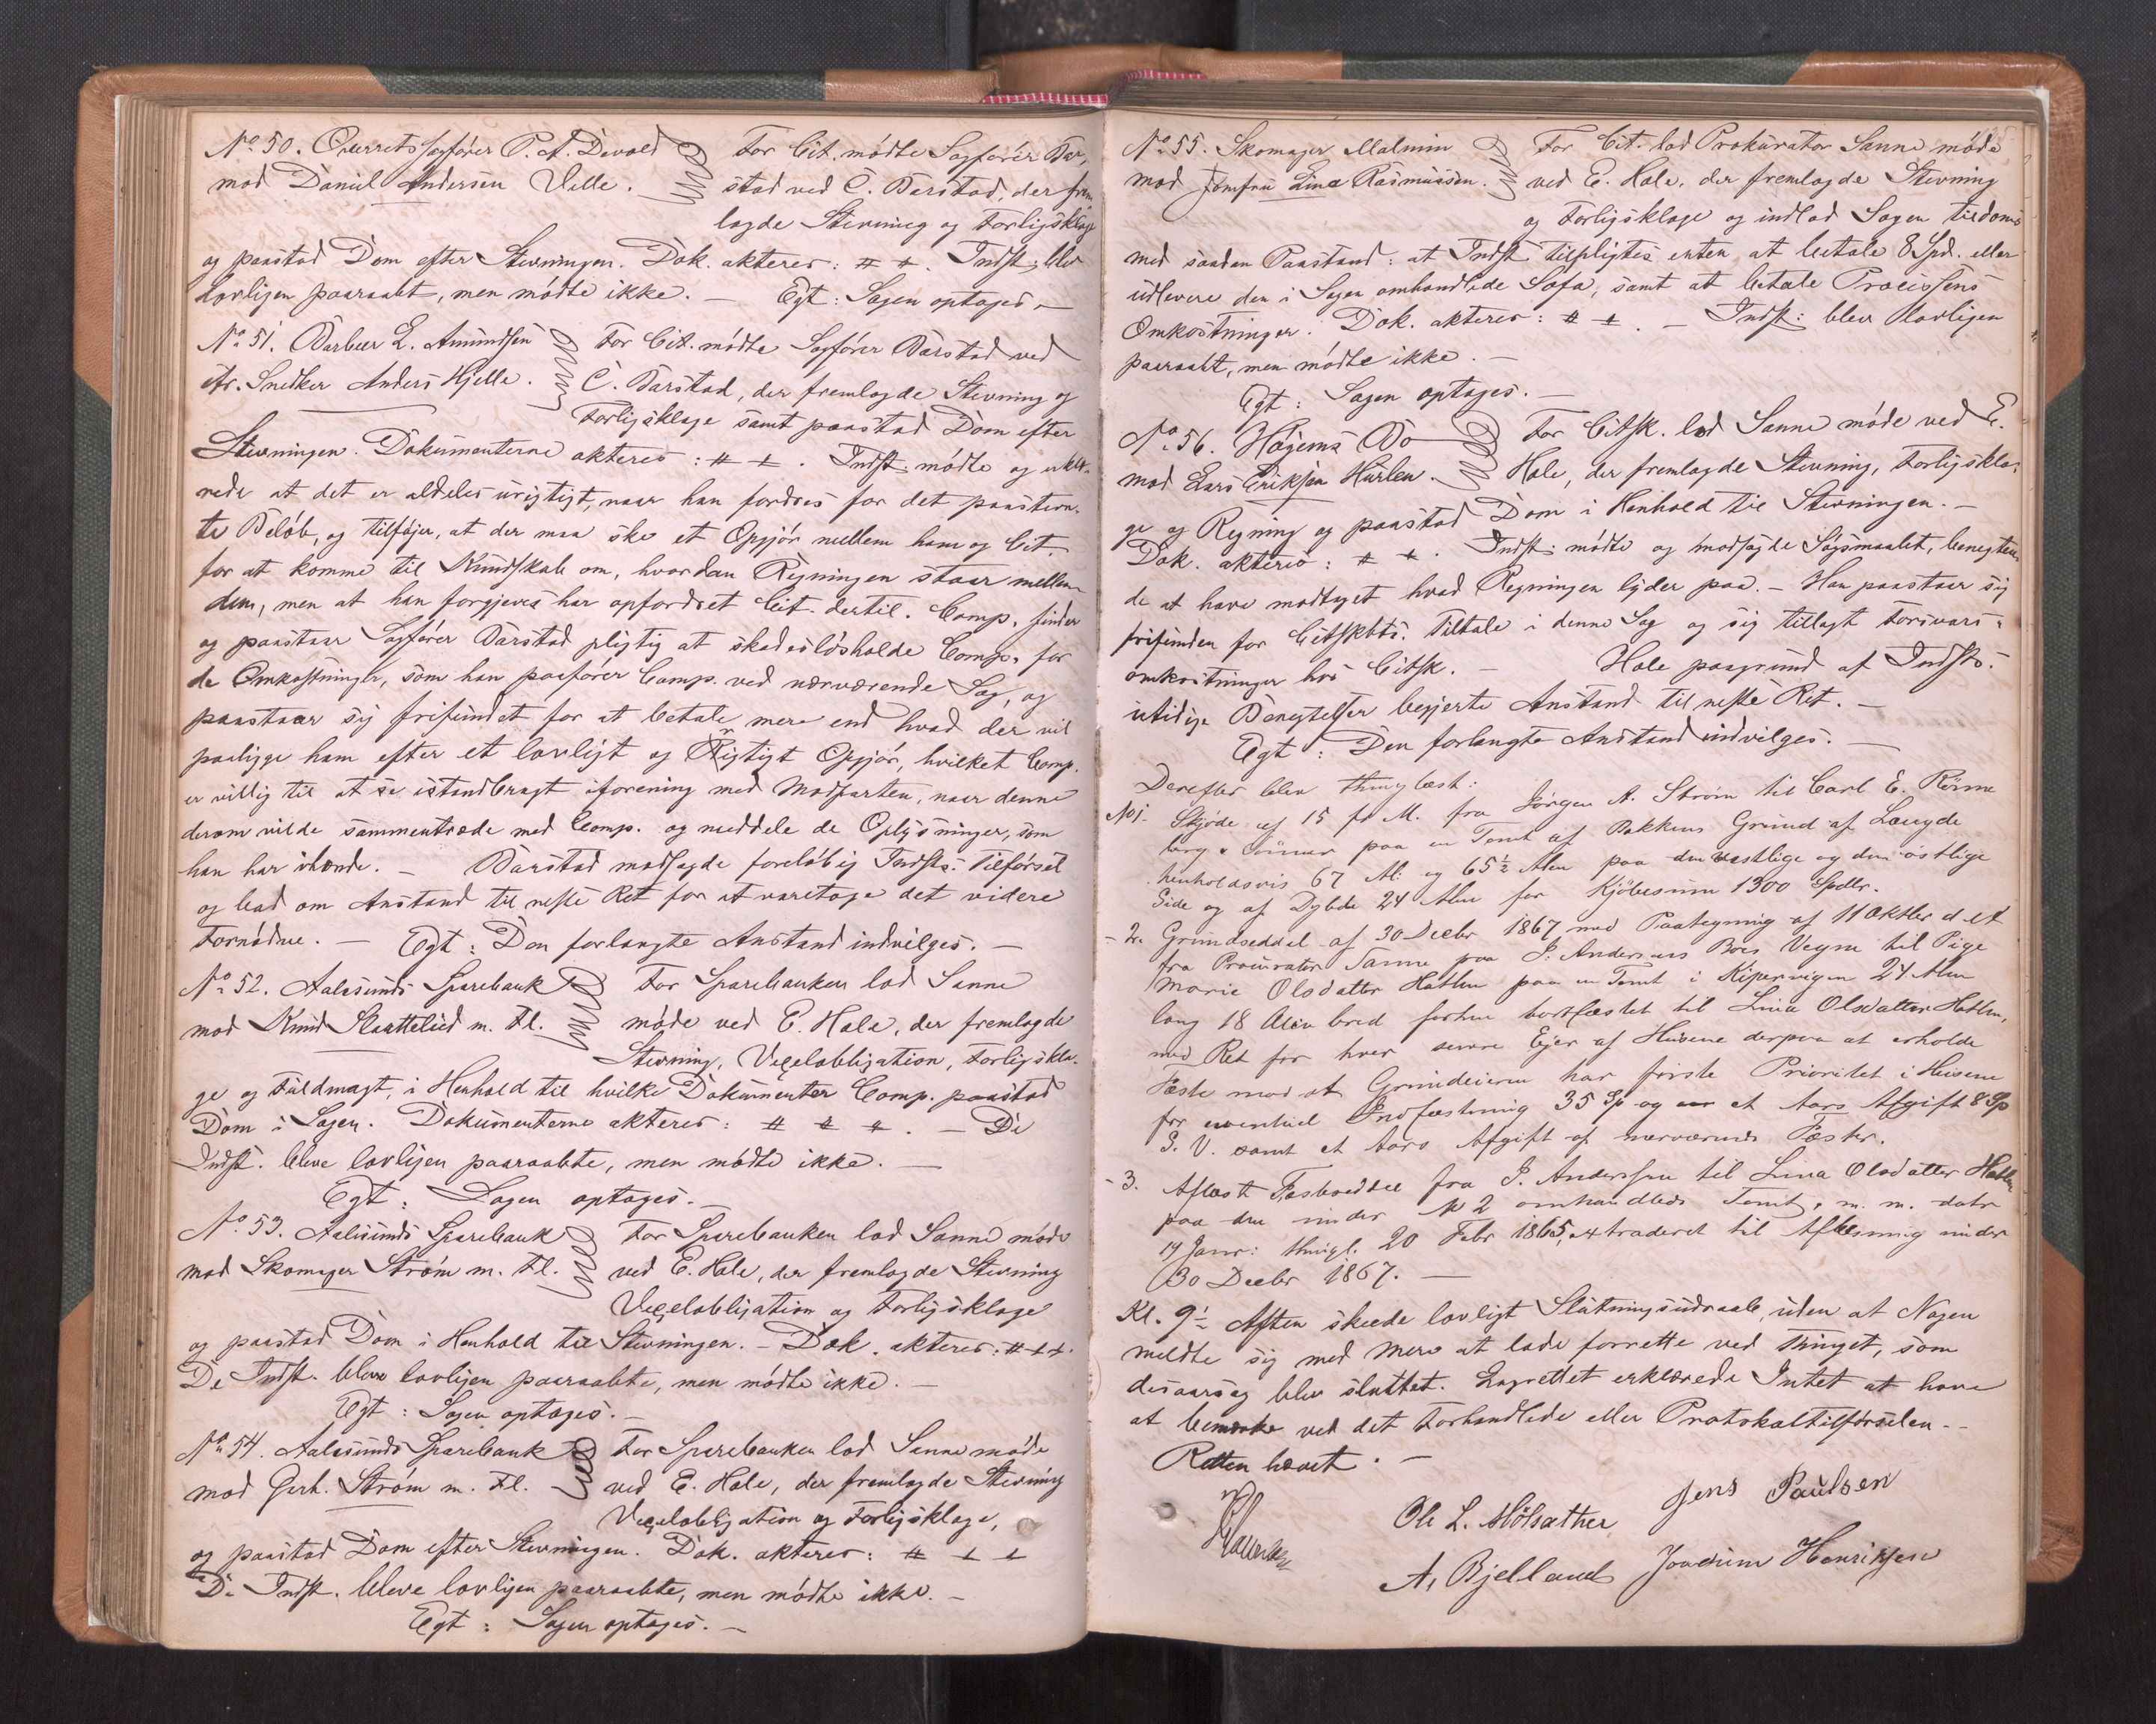 No 50. Overretssagfører P. A. Devold
mod Daniel Andersen Velle.
For Cit. mødte Sagfører Bar-
stad ved C. Barstad, der frem-
lagde Stevning og Forligsklage
og paastod Dom efter Stevningen. Dok. akteres: # #. Indst: blev
lovligen paaraabt, men mødte ikke. – Egt: Sagen optages –
No 51. Barber L. Amundsen
ctr. Snedker Anders Hjelle.
For Cit. mødte Sagfører Barstad ved
C. Barstad, der fremlagde Stevning og
Forligsklage samt paastod Dom efter
Stevningen. Dokumenterne akteres: # #. Indst: mødte og erklæ-
rede at det er aldeles urigtigt, naar han fordres for det paastevn-
te Beløb, og tilføjer, at der maa ske et Opgjør mellem ham og Cit.
for at komme til Kundskab om, hvordan Regningen staar mellem
dem, men at han forgjeves har opfordret Cit. dertil. Comp. finder
og paastaar Sagfører Barstad pligtig at skadesløsholde Comp. for
de Omkostninger, som han paafører Comp. ved nærværende Sag, og
paastaar sig frifundet for at betale mere end hvad der vil
paaligge ham efter et lovligt og Rigtigt Opgjør, hvilket Comp.
er villig til at se istandbragt iforening med Modparten, naar denne
derom vilde sammentræde med Comp. og meddele de Oplysninger, som
han har ihænde. – Barstad modsagde foreløbig Indsts. Tilførsel
og bad om Anstand til neste Ret for at varetage det videre
Fornødne. – Egt: Den forlangte Anstand indvilges. –
No 52. Aalesunds Sparebank
mod Knud Slaattelid m. Fl.
For Sparebanken lod Sanne
møde ved E. Hole, der fremlagde
Stevning, Vexelobligation, Forligskla-
ge og Fuldmagt, i Henhold til hvilke Dokumenter Comp. paastod
Dom i Sagen. Dokumenterne akteres: # # #. – De
Indst. bleve lovligen paaraabte, men mødte ikke. –
Egt: Sagen optages. –
No 53. Aalesunds Sparebank
mod Skomager Strøm m. Fl.
For Sparebanken lod Sanne møde
ved E. Hole, der fremlagde Stevning
Vexelobligation og Forligsklage
og paastod Dom i Henhold til Stevningen. – Dok. akteres: # # #.
De Indst. bleve lovligen paaraabte, men mødte ikke. –
Egt: Sagen optages. –
No 54. Aalesunds Sparebank
mod Gerh. Strøm m. Fl.
For Sparebanken lod Sanne møde
ved E. Hole, der fremlagde Stevning
Vexelobligation og Forligsklage,
og paastod Dom efter Stevningen. Dok. akteres: # # #
De Indst. bleve lovligen paaraabte, men mødte ikke. –
Egt: Sagen optages. –
No 55. Skomager Malmin
mod Jomfru Lina Rasmussen.
For Cit. lod Prokurator Sanne møde
ved E. Hole, der fremlagde Stevning
og Forligsklage og indlod Sagen tildoms
med saadan Paastand: at Indst. tilpligtes enten at betale 8 Spd. eller
udlevere den i Sagen omhandlede Sofa, samt at betale Processens
Omkostninger. Dok. akteres: # #. – Indst: blev lovligen
paaraabt, men mødte ikke. –
Egt: Sagen optages. –
No 56. Hagems Bo
mod Lars Eriksen Hurlen.
For Citsk. lod Sanne møde ved E.
Hole, der fremlagde Stevning, Forligskla-
ge og Regning og paastod Dom i Henhold til Stevningen. –
Dok. akteres: # #. Indst: mødte og modsagde Søgsmaalet, benegten-
de at have modtaget hvad Regningen lyder paa. – Han paastaar sig
frifunden for Citskbts. Tiltale i denne Sag og sig tillagt Forsvars-
omkostninger hos Citsk. – Hole paagrund af Indsts.
utidige Benegtelser begjerte Anstand til neste Ret. –
Egt: Den forlangte Anstand indvilges. –
Derefter blev thinglæst:
No 1. Skjøde af 15 f. M. fra Jørgen A. Strøm til Carl E. Rønne-
berg & Sønner paa en Tomt af Bakkens Grund af Længde
henholdsvis 67 Al: og 65½ Alen paa den vestlige og den østlige
Side og af Dybde 24 Alen for Kjøbesum 1300 Spdlr.
- 2. Grundseddel af 30 Decbr 1867 med Paategning af 11 Oktbr d. A
fra Procurator Sanne paa J. Andersens Bos Vegne til Pige
Marie Olsdatter Hatlen paa en Tomt i Kipervigen 24 Alen
lang 18 Alen bred forhen bortfæstet til Lina Olsdatter Hatlen,
med Ret for hver senere Ejer af Husene derpaa at erholde
Fæste mod at Grundeieren har første Prioritet i Husene
for eventuel Indfæstning 35 Sp og et Aars Afgift 8 Sp
P. V. samt et Aars Afgift af nærværende Fæster.
- 3. Aflæst Fæsteseddel fra J. Andersen til Lina Olsdatter Hatlen
paa den under No 2 omhandlede Tomt, m. m. datr
19 Janr: thingl. 20 Febr 1865, extraderet til Aflæsning under
30 Decbr 1867. –
Kl. 9½ Aften skede lovligt Slutningsudraab, uden at Nogen
meldte sig med Mere at lade forrette ved Thinget, som
desaarsag blev sluttet. Lagrettet erklærede Intet at have
at bemærke ved det Forhandlede eller Protokoltilførselen. –
Retten hævet. –
Ole L. Mølsæther
Jens Paulsen
A. Bjelland
Joachim Henriksen